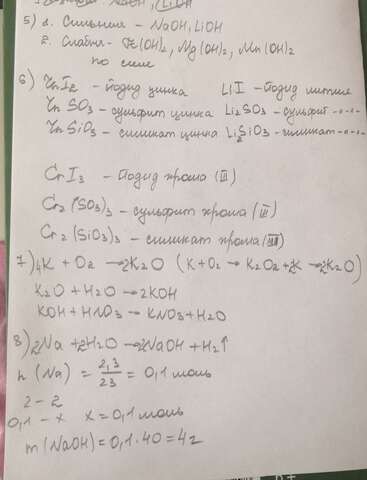 5) 1. Сильная - NaOH, LiOH
2. Слабая - Fe(OH)2, Mg(OH)2, Mn(OH)2
по силе
6) ZnI2 - йодид цинка LiI - йодид лития
ZnSO3 - сульфит цинка Li2SO3 - сульфит -"-"-
ZnSiO3 - силикат цинка Li2SiO3 - силикат -"-"-
CrI3 - йодид хрома (III)
Cr2(SO3)3 - сульфит хрома (III)
Cr2(SiO3)3 - силикат хрома (III)
7) 4K + O2 → 2K2O (K + O2 → K2O2 + 2K → 2K2O)
K2O + H2O → 2KOH
KOH + HNO3 → KNO3 + H2O
8) 2Na + 2H2O → 2NaOH + H2↑
n(Na) = 2,3/23 = 0,1 моль
2 - 2
0,1 - x x = 0,1 моль
m(NaOH) = 0,1 · 40 = 4г